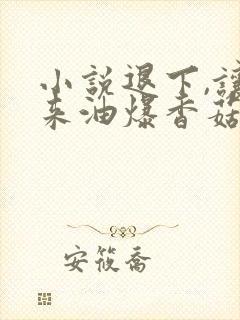 小説退下,讓
来油爆香菇
安筱喬